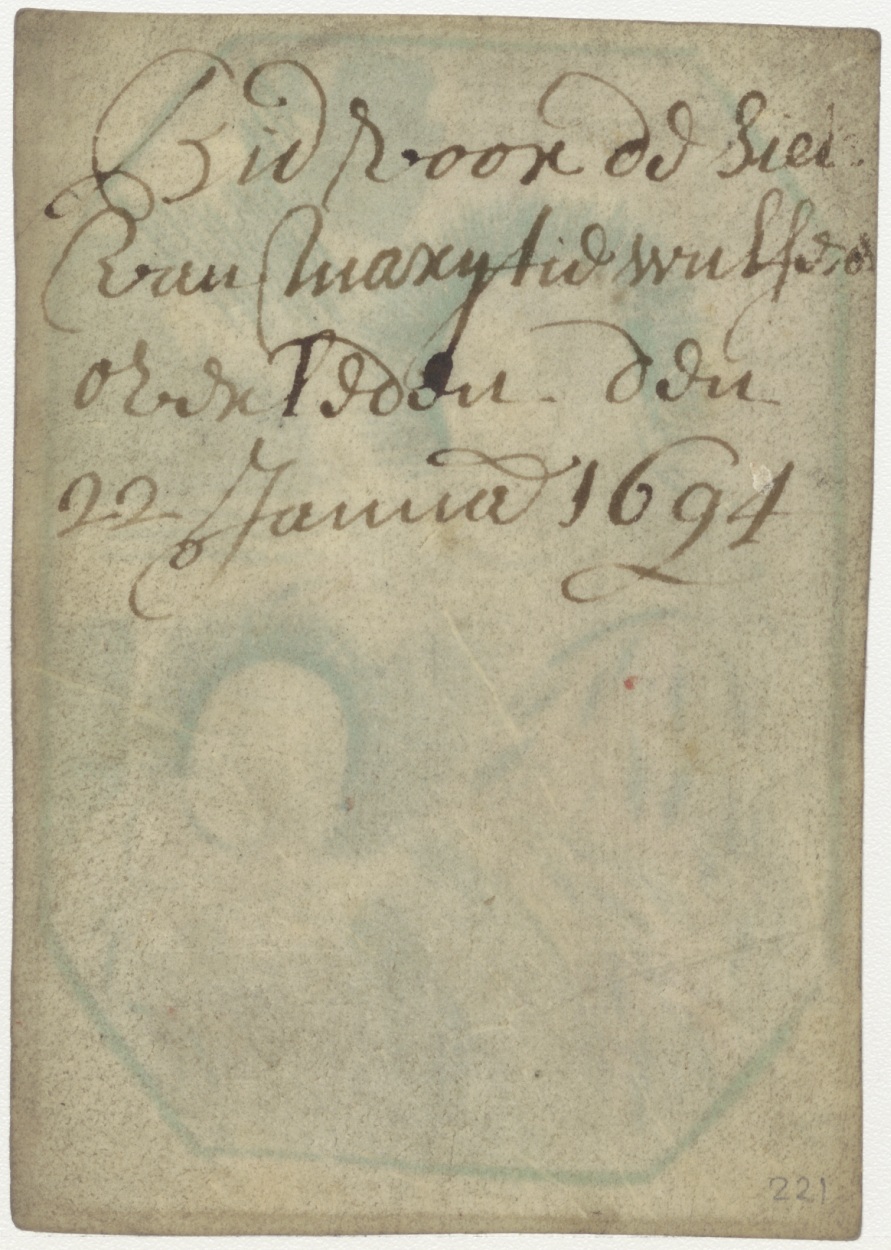 Bid voor de Siel
van marytie wulfse
overleden. den
22 Janua 1694
221